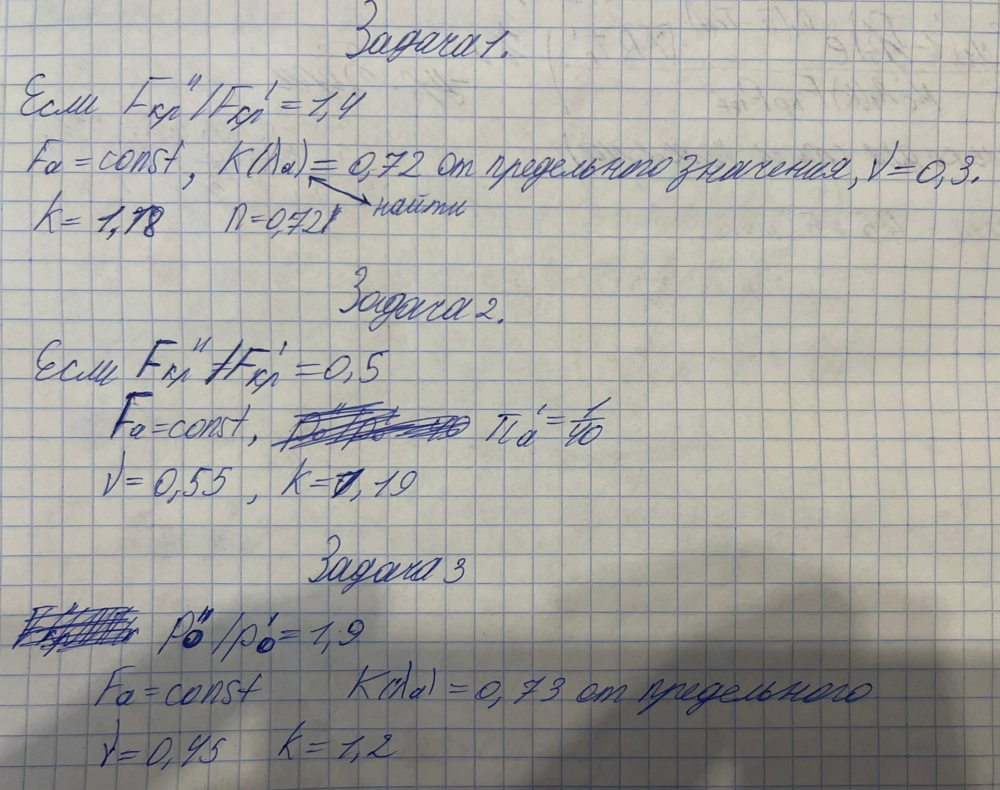 Задача 1.
Если Fкр" / Fкр' = 1,4
Fa = const, K(λa) = 0,72 от предельного значения, ν = 0,3.
найти
k = 1,18 n = 0,721
Задача 2.
Если Fкр" / Fкр' = 0,5
Fa = const, πa' = 1/40
ν = 0,55 , k = 1,19
Задача 3
p0" / p0' = 1,9
Fa = const K(λa) = 0,73 от предельного
ν = 0,45 k = 1,2